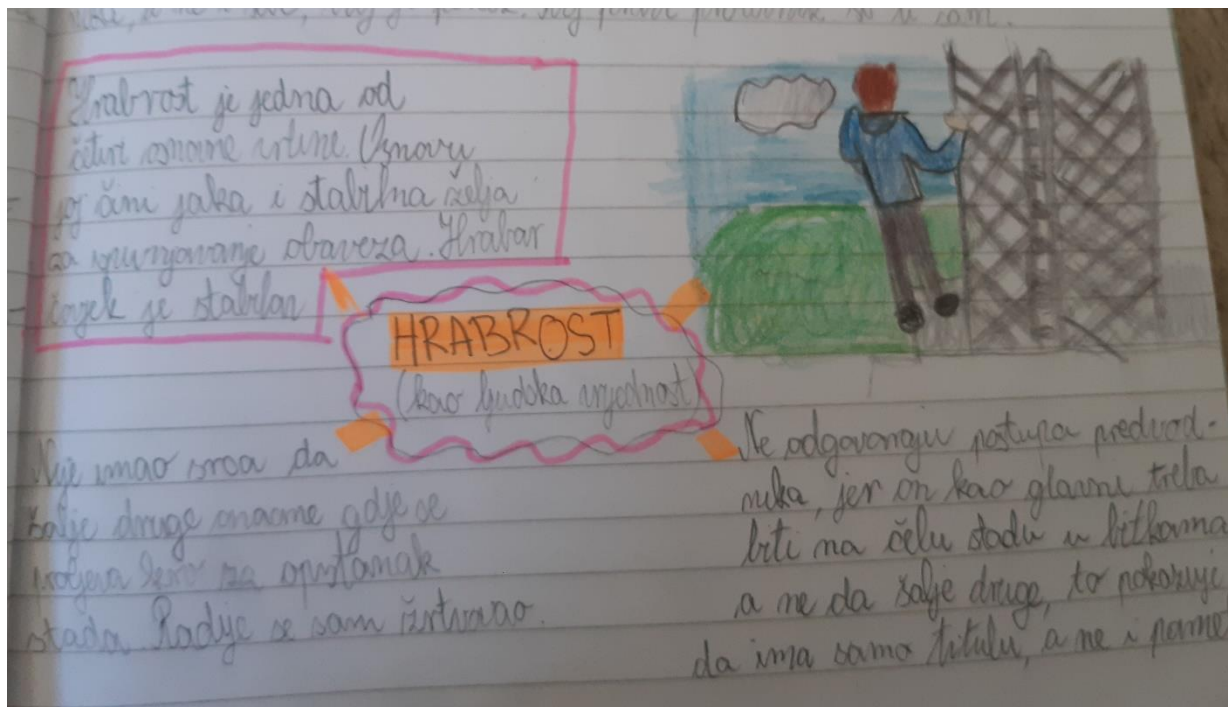 Hrabrost je jedna od
četiri osnovne vrline. Osnovu
joj čini jaka i stabilna želja
za ispunjavanje obaveza. Hrabar
čovjek je stabilan
HRABROST
(kao ljudska vrijednost)
Nije imao srca da
šalje druge onamo gdje se
za opstanak
stada. Radije se sam žrtvovao.
Ne odgovaraju postupa predvod-
nika, jer on kao glavni treba
biti na čelu stada u bitkama
a ne da šalje druge, to pokazuje
da ima samo titulu, a ne i pame